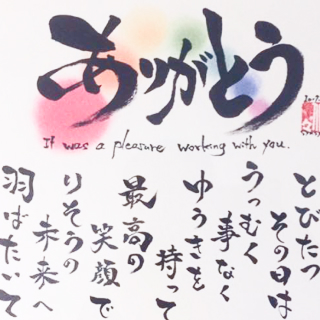 ありがとう
It was a pleasure working with you.
とびたつ
その日は
うつむく
事なく
ゆうきを
持って
最高の
笑顔で
りそうの
未来へ
羽ばたいて